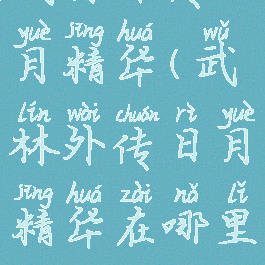 yuè jīng huá wǔ
月精华(武
lín wài chuán rì yuè
林外传日月
jīng huá zài nǎ lǐ
精华在哪里